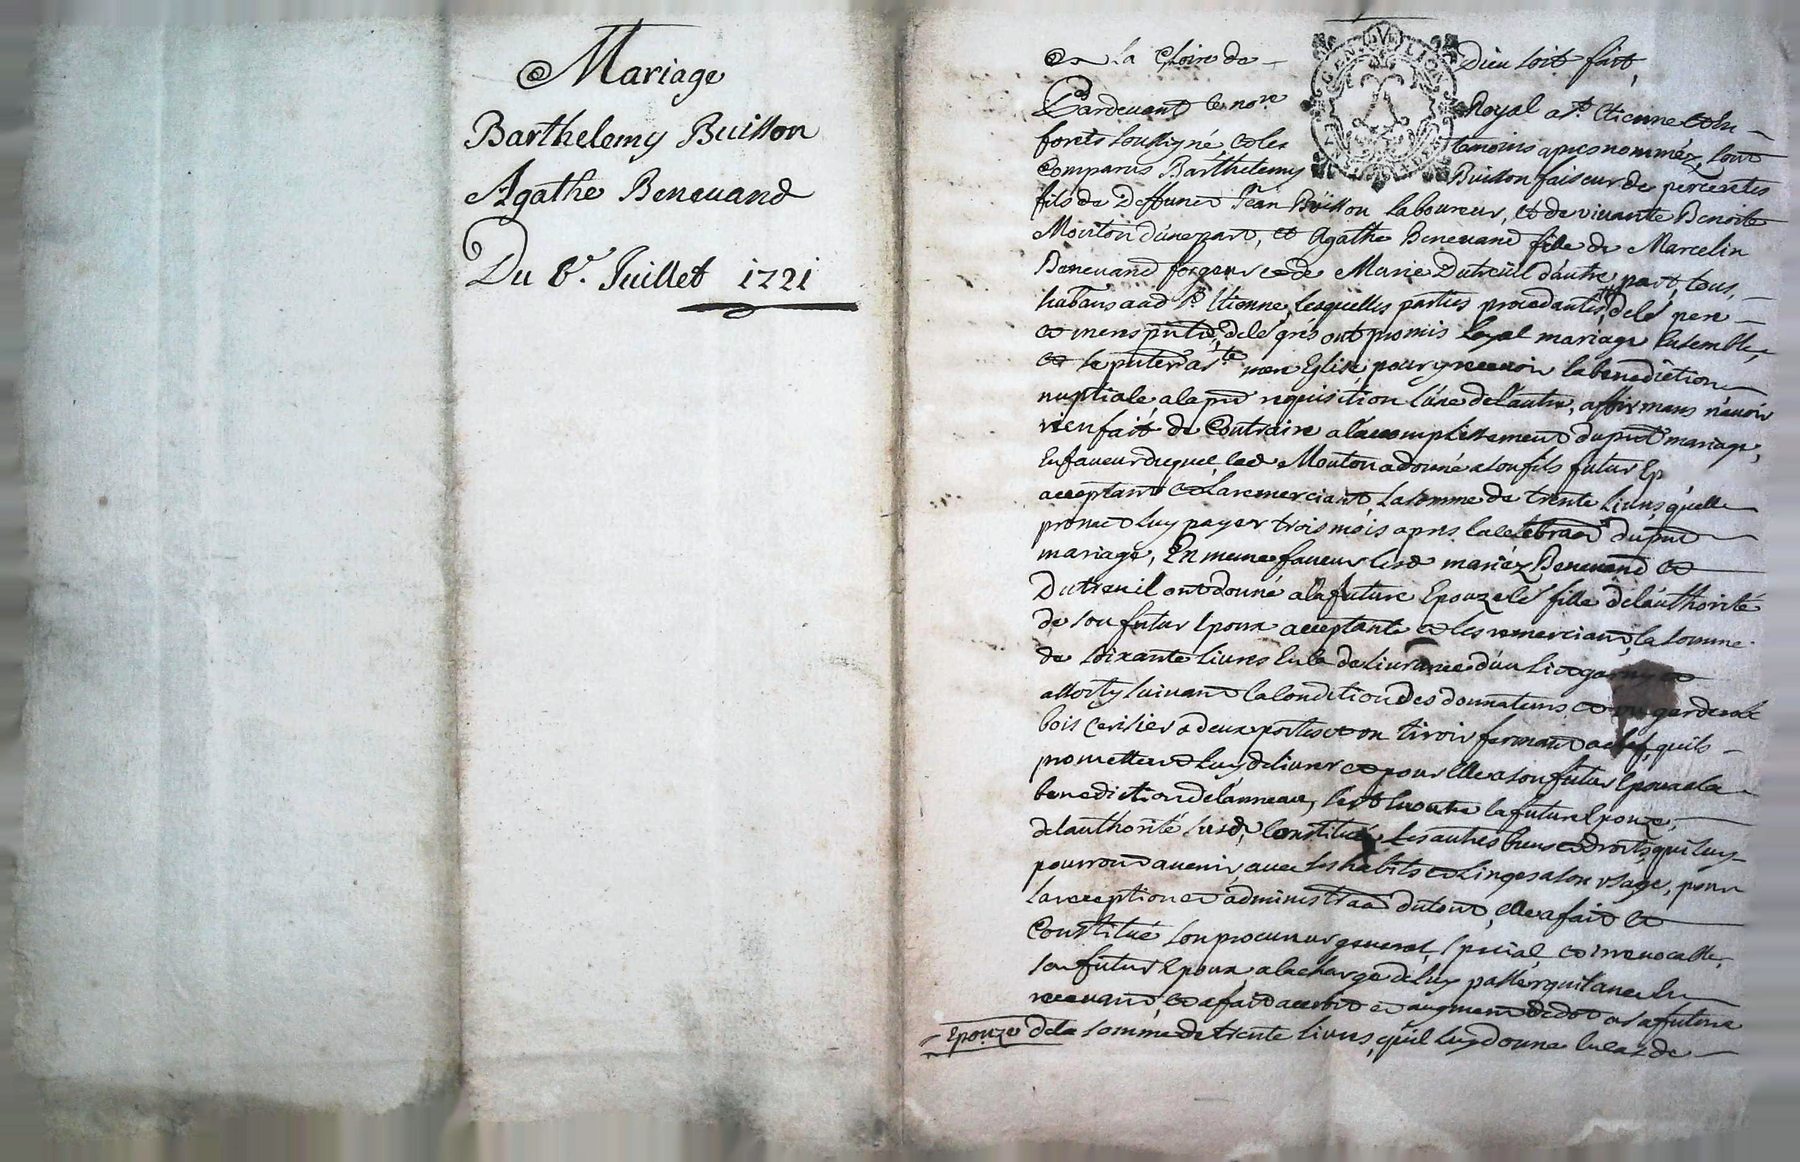 Mariage
Barthelemy Buisson
Agathe Beneuand
Du 8e. Juillet 1721
GEN. LION
A La Gloire de Dieu soit fait,
Pardeuant le nore Royal a St. Etienne en
forets soussigné et les temoins apres nommèz, sont
Comparus Barthelemy Buisson faiseur de percerettes
fils de Deffunct Jean Buisson laboureur, et de viuante Benoite
Mouton d'une part, et Agathe Beneuand fille de Marcelin
Beneuand forgeur et de Marie Dutreuil d'autre part, tous
habitans aud St. Etienne, lesquelles parties procedantes de lé pere
et meres de lé grés ont promis loyal mariage Ensemble,
et se nore Eglise pour y receuoir la benediction
nuptiale a la pre requisition l'une de l'autre, affirmans n'auoir
rien fait de Contraire a l'accomplissement du pnt mariage,
En faueur duquel, lad Mouton a donné a son fils futur Ep
acceptant et la remerciant, la somme de trente liures, qu'elle
promet luy payer trois mois apres la celebraon du pnt
mariage, En meme faueur lesd mariéz Beneuand et
Dutreuil ont donné a la future Epouze lé fille de l'authorité
de son futur Epoux acceptante et les remerciant, la somme
de soixante liures En la deliurance d'un lict garny et
assorty suiuant la Condition des donnateurs et un garderobe
bois Cerisier a deux portes et un tiroir fermant a clef, quils
promettent luy deliurer et pour Elle a son futur Epoux a la
benediction de l'anneau, s'est En outre la future Epouze,
de l'authorité susd, Constitué ses autres biens et droits, qui luy
pourront auenir, auec ses habits et linges a son vsage, pour
la reception et administraon du tout, elle a fait et
Constitué son procureur general, special, et irreuocable,
son futur Epoux a la charge de luy passer quitance En
receuant, et a fait accroit et augment de dot a sa future
Epouze de la somme de trente liures, qu'il luy donne En cas de